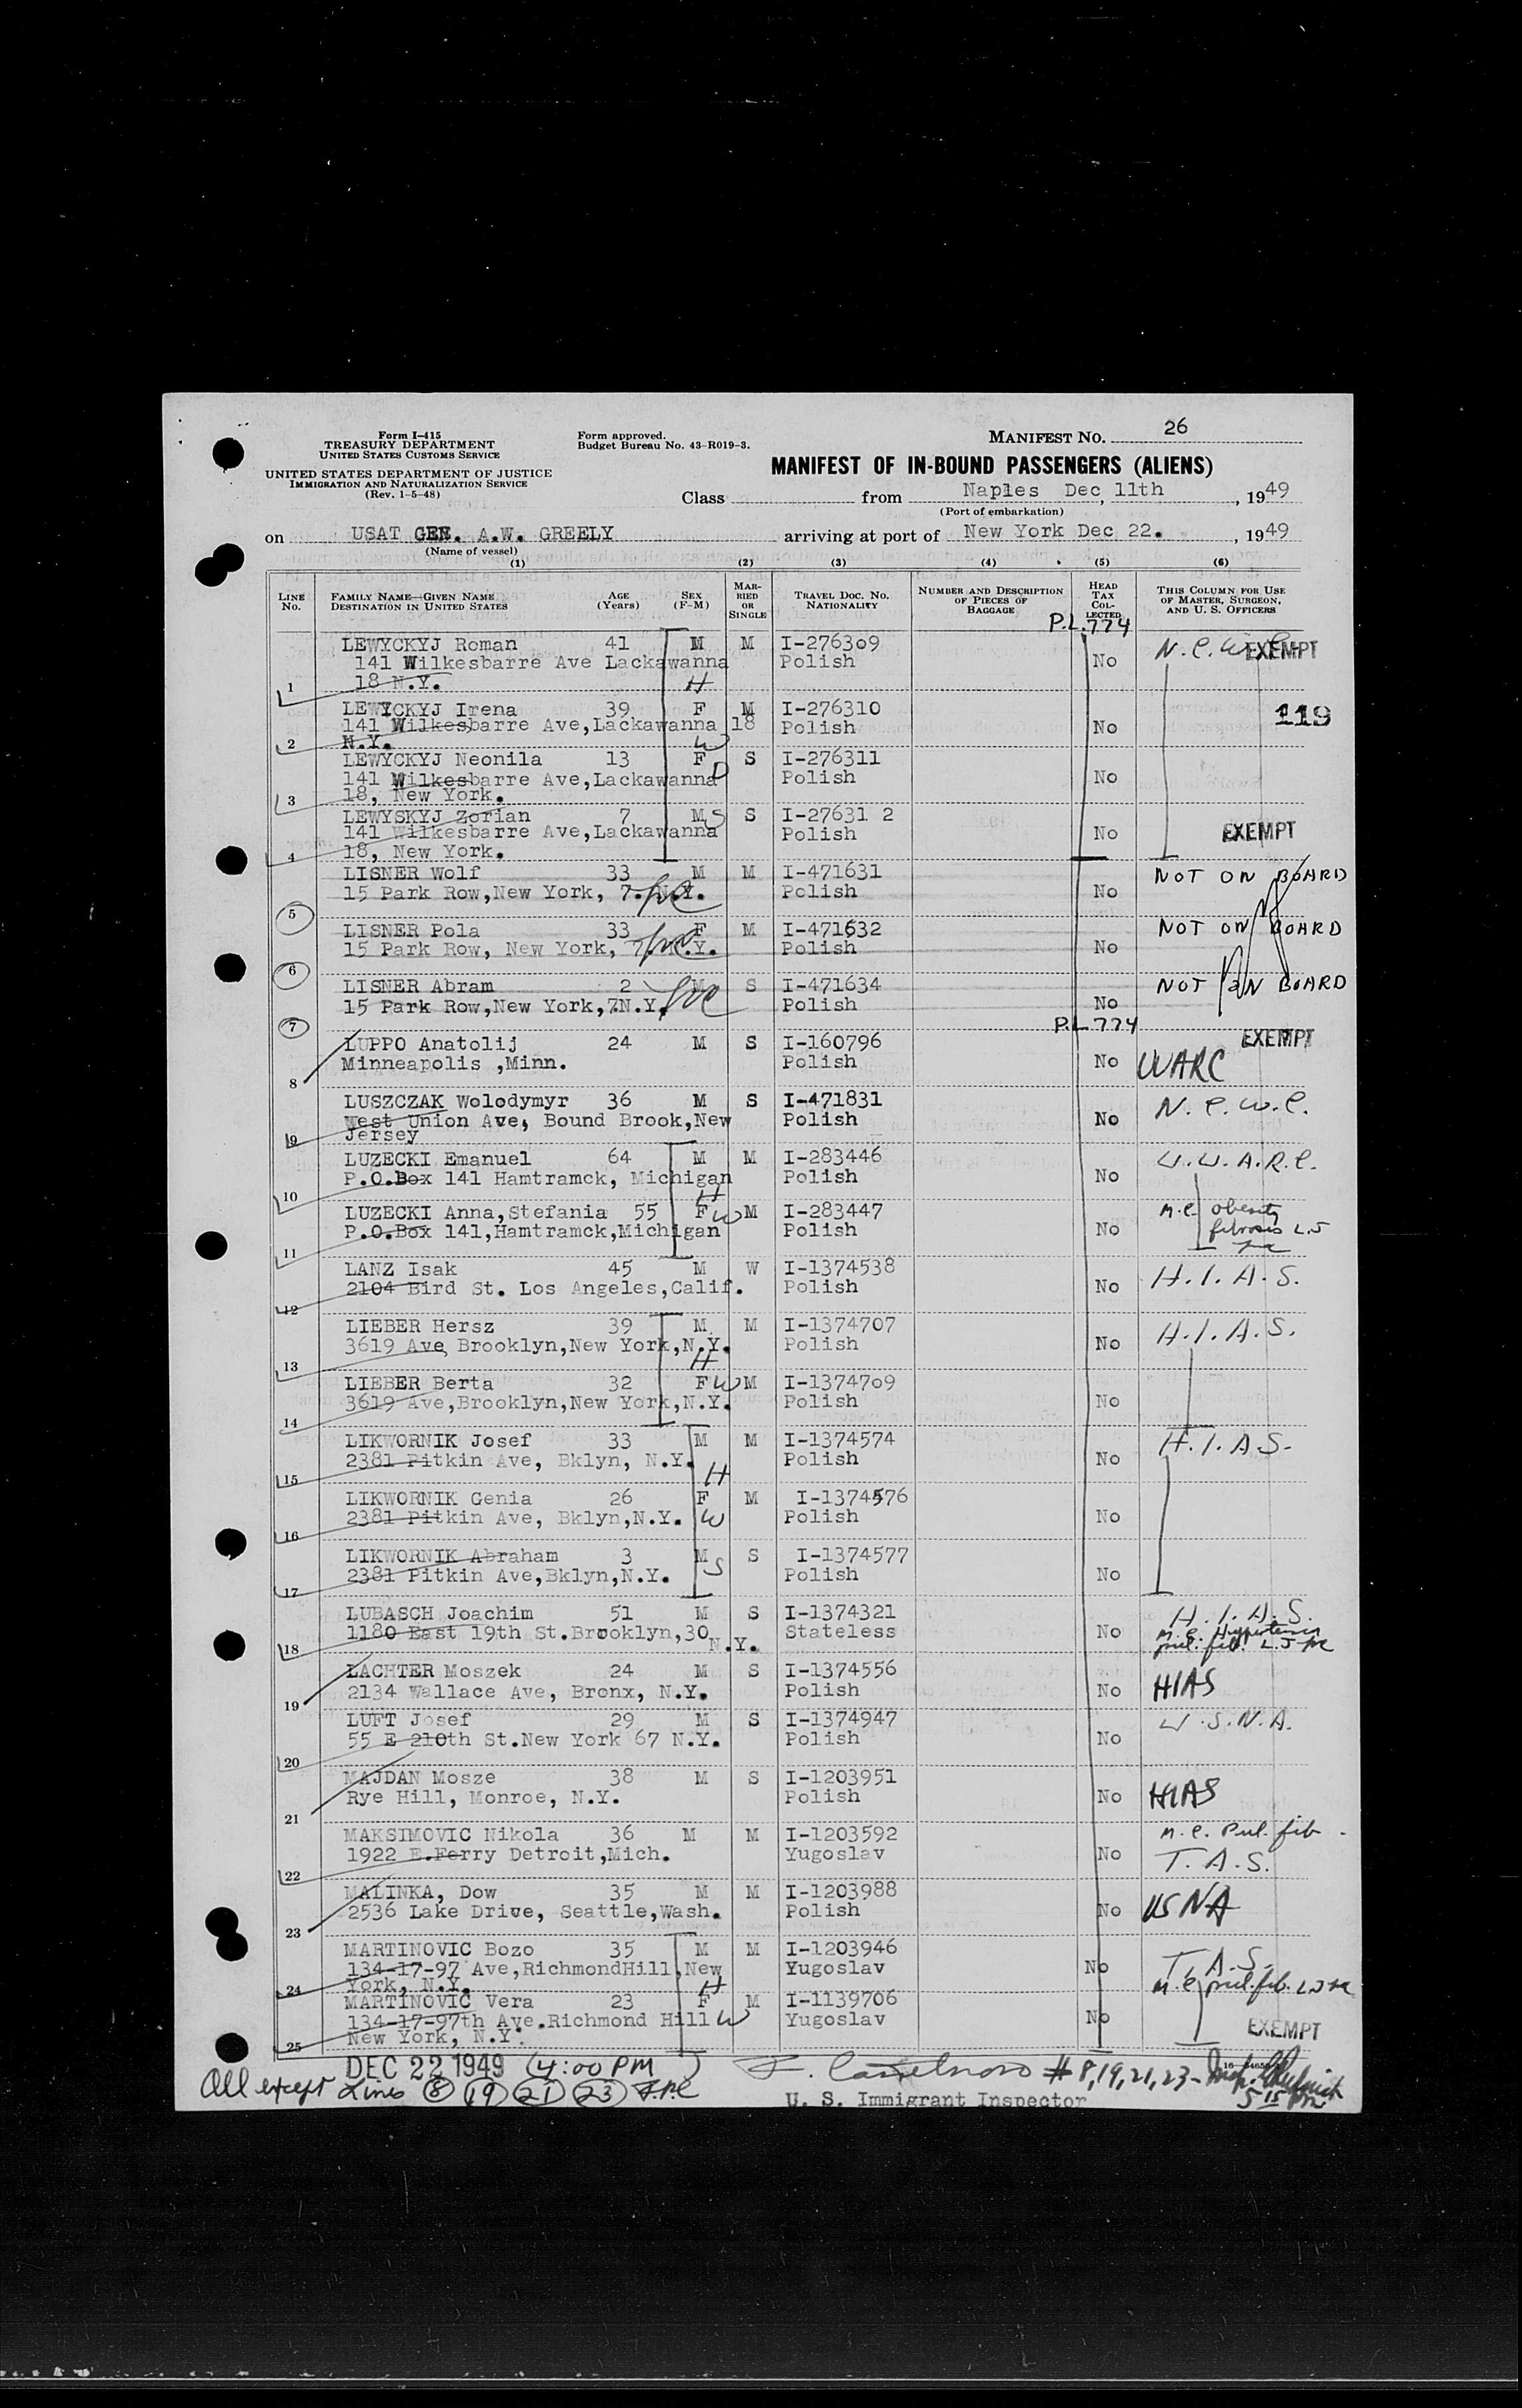 Form I-415
TREASURY DEPARTMENT
UNITED STATES CUSTOMS SERVICE
UNITED STATES DEPARTMENT OF JUSTICE
IMMIGRATION AND NATURALIZATION SERVICE
(Rev. 1-5-48)
Form approved.
Budget Bureau No. 43-R019-3.
MANIFEST NO. 26
MANIFEST OF IN-BOUND PASSENGERS (ALIENS)
Class from Naples Dec, 11th, 1949
(Port of embarkation)
on USAT GEN. A.W. GREELY arriving at port of New York Dec 22., 1949
(Name of vessel)
(1) (2) (3) (4) (5) (6)
LINE No. FAMILY NAME—GIVEN NAME DESTINATION IN UNITED STATES AGE (Years) SEX (F-M) MARRIED OR SINGLE TRAVEL DOC. NO. NATIONALITY NUMBER AND DESCRIPTION OF PIECES OF BAGGAGE HEAD TAX COLLECTED THIS COLUMN FOR USE OF MASTER, SURGEON, AND U. S. OFFICERS
P.L. 774
LEWYCKYJ Roman 41 M M I-276309 N.C.W.C. EXEMPT
141 Wilkesbarre Ave Lackawanna Polish No
1 18 N.Y. H
LEWYCKYJ Irena 39 F M I-276310 119
141 Wilkesbarre Ave,Lackawanna 18 Polish No
2 N.Y. W
LEWYCKYJ Neonila 13 F S I-276311
141 Wilkesbarre Ave,Lackawanna D Polish No
3 18, New York.
LEWYSKYJ Zorian 7 M S S I-27631 2
141 Wilkesbarre Ave,Lackawanna Polish No EXEMPT
4 18, New York.
LISNER Wolf 33 M M I-471631 NOT ON BOARD
15 Park Row,New York, 7. N.Y. Polish No
5
LISNER Pola 33 F M I-471632 NOT ON BOARD
15 Park Row, New York, 7. N.Y. Polish No
6
LISNER Abram 2 M S I-471634 NOT ON BOARD
15 Park Row,New York,7.N.Y. Polish No
7 P.L 774
LUPPO Anatolij 24 M S I-160796 EXEMPT
Minneapolis ,Minn. Polish No UUARC
8
LUSZCZAK Wolodymyr 36 M S I-471831 N.C.W.C.
West Union Ave, Bound Brook,New Polish No
9 Jersey
LUZECKI Emanuel 64 M M I-283446 U.U.A.R.C.
P.O.Box 141 Hamtramck, Michigan Polish No
10 H
LUZECKI Anna,Stefania 55 F W M I-283447 m.c. obesity
P.O.Box 141,Hamtramck,Michigan Polish No fibrosis L.J
11
LANZ Isak 45 M W I-1374538 H.I.A.S.
2104 Bird St. Los Angeles,Calif. Polish No
12
LIEBER Hersz 39 M M I-1374707 H.I.A.S.
3619 Ave Brooklyn,New York,N.Y. Polish No
13 H
LIEBER Berta 32 F W M I-1374709
3619 Ave,Brooklyn,New York,N.Y. Polish No
14
LIKWORNIK Josef 33 M M I-1374574 H.I.A.S.
2381 Pitkin Ave, Bklyn, N.Y. Polish No
15 H
LIKWORNIK Genia 26 F M I-1374576
2381 Pitkin Ave, Bklyn,N.Y. W Polish No
16
LIKWORNIK Abraham 3 M S S I-1374577
2381 Pitkin Ave,Bklyn,N.Y. Polish No
17
LUBASCH Joachim 51 M S I-1374321 H.I.A.S.
1180 East 19th St.Brooklyn,30 N.Y. Stateless No m.c. Hypertension
18 pul. fib. L.J
LACHTER Moszek 24 M S I-1374556 HIAS
2134 Wallace Ave, Bronx, N.Y. Polish No
19
LUFT Josef 29 M S I-1374947 U.S.N.A.
55 E 210th St.New York 67 N.Y. Polish No
20
MAJDAN Mosze 38 M S I-1203951 HIAS
Rye Hill, Monroe, N.Y. Polish No
21
MAKSIMOVIC Nikola 36 M M I-1203592 m.c. Pul. fib
1922 E.Ferry Detroit,Mich. Yugoslav No T.A.S.
22
MALINKA, Dow 35 M M I-1203988 USNA
2536 Lake Drive, Seattle,Wash. Polish No
23
MARTINOVIC Bozo 35 M M I-1203946 T.A.S.
134-17-97 Ave,RichmondHill,New Yugoslav No m.c. pul. fib.
24 York, N.Y. H
MARTINOVIC Vera 23 F M I-1139706
134-17-97th Ave.Richmond Hill W Yugoslav No EXEMPT
25 New York, N.Y.
DEC 22 1949 (4:00 PM)
All except Lines 8 19 21 23 # 8,19,21,23- Insp.
U. S. Immigrant Inspector 5 15 PM